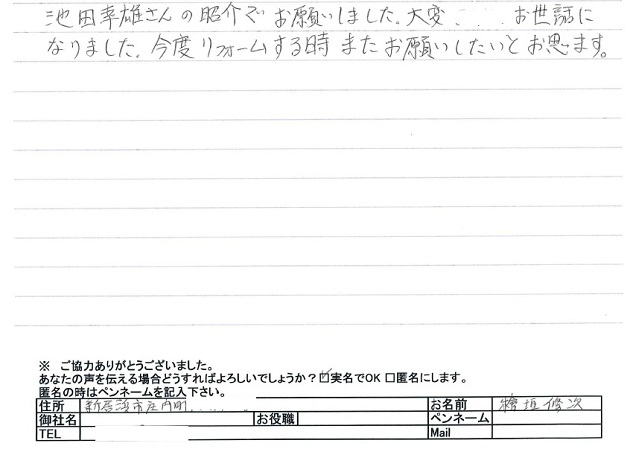 池田幸雄さんの紹介でお願いしました。大変....お世話に
なりました。今度リフォームする時またお願いしたいとお思ます。
※　ご協力ありがとうございました。
あなたの声を伝える場合どうすればよろしいでしょうか？☑実名でOK □匿名にします。
匿名の時はペンネームを記入下さい。
住所 新居浜市庄内町...... お名前 檜垣修次
御社名 お役職 ペンネーム
TEL Mail